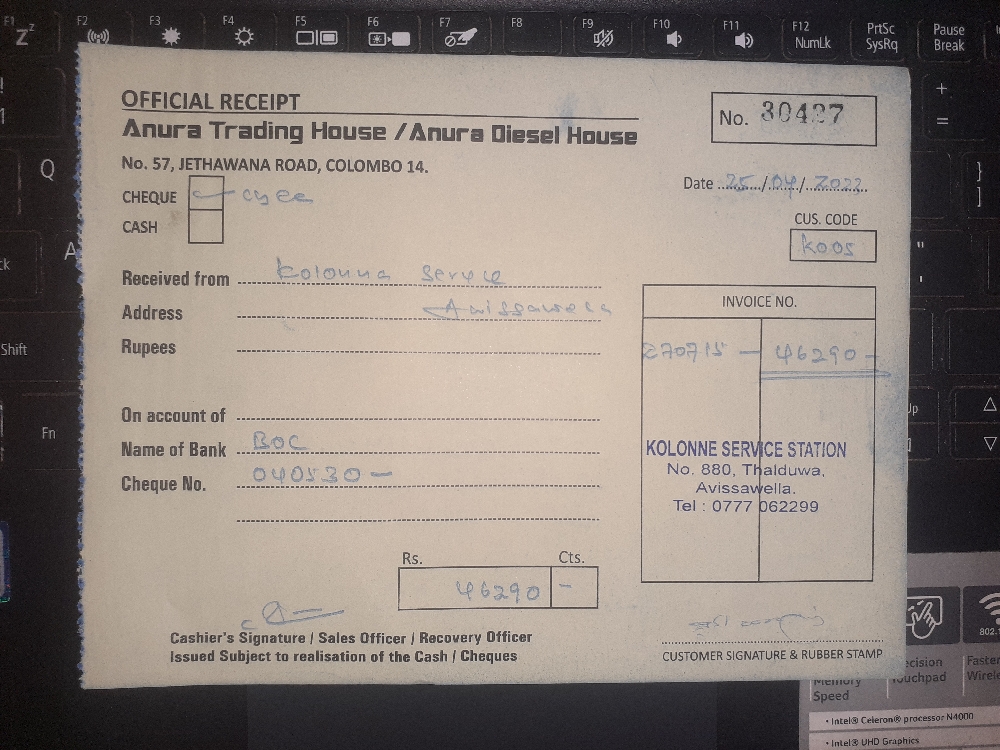 F1 F2 F3 F4 F5 F6 F7 F8 F9 F10 F11 F12 NumLk PrtSc SysRq Pause Break
OFFICIAL RECEIPT
No. 30427
Anura Trading House / Anura Diesel House
No. 57, JETHAWANA ROAD, COLOMBO 14.
Date 25/04/2022
CHEQUE
CASH
CUS. CODE
K005
Received from Kolonna Service
Address Avissawella
Rupees
INVOICE NO.
270715 — 46290 –
On account of
Name of Bank BOC
Cheque No. 040530 –
KOLONNE SERVICE STATION
No. 880, Thalduwa,
Avissawella.
Tel : 0777 062299
Rs. Cts.
46290 –
Cashier's Signature / Sales Officer / Recovery Officer
Issued Subject to realisation of the Cash / Cheques
CUSTOMER SIGNATURE & RUBBER STAMP
Q
A
Shift
Fn
Memory Speed
Touchpad
802.1
Faster
• Intel® Celeron® processor N4000
• Intel® UHD Graphics